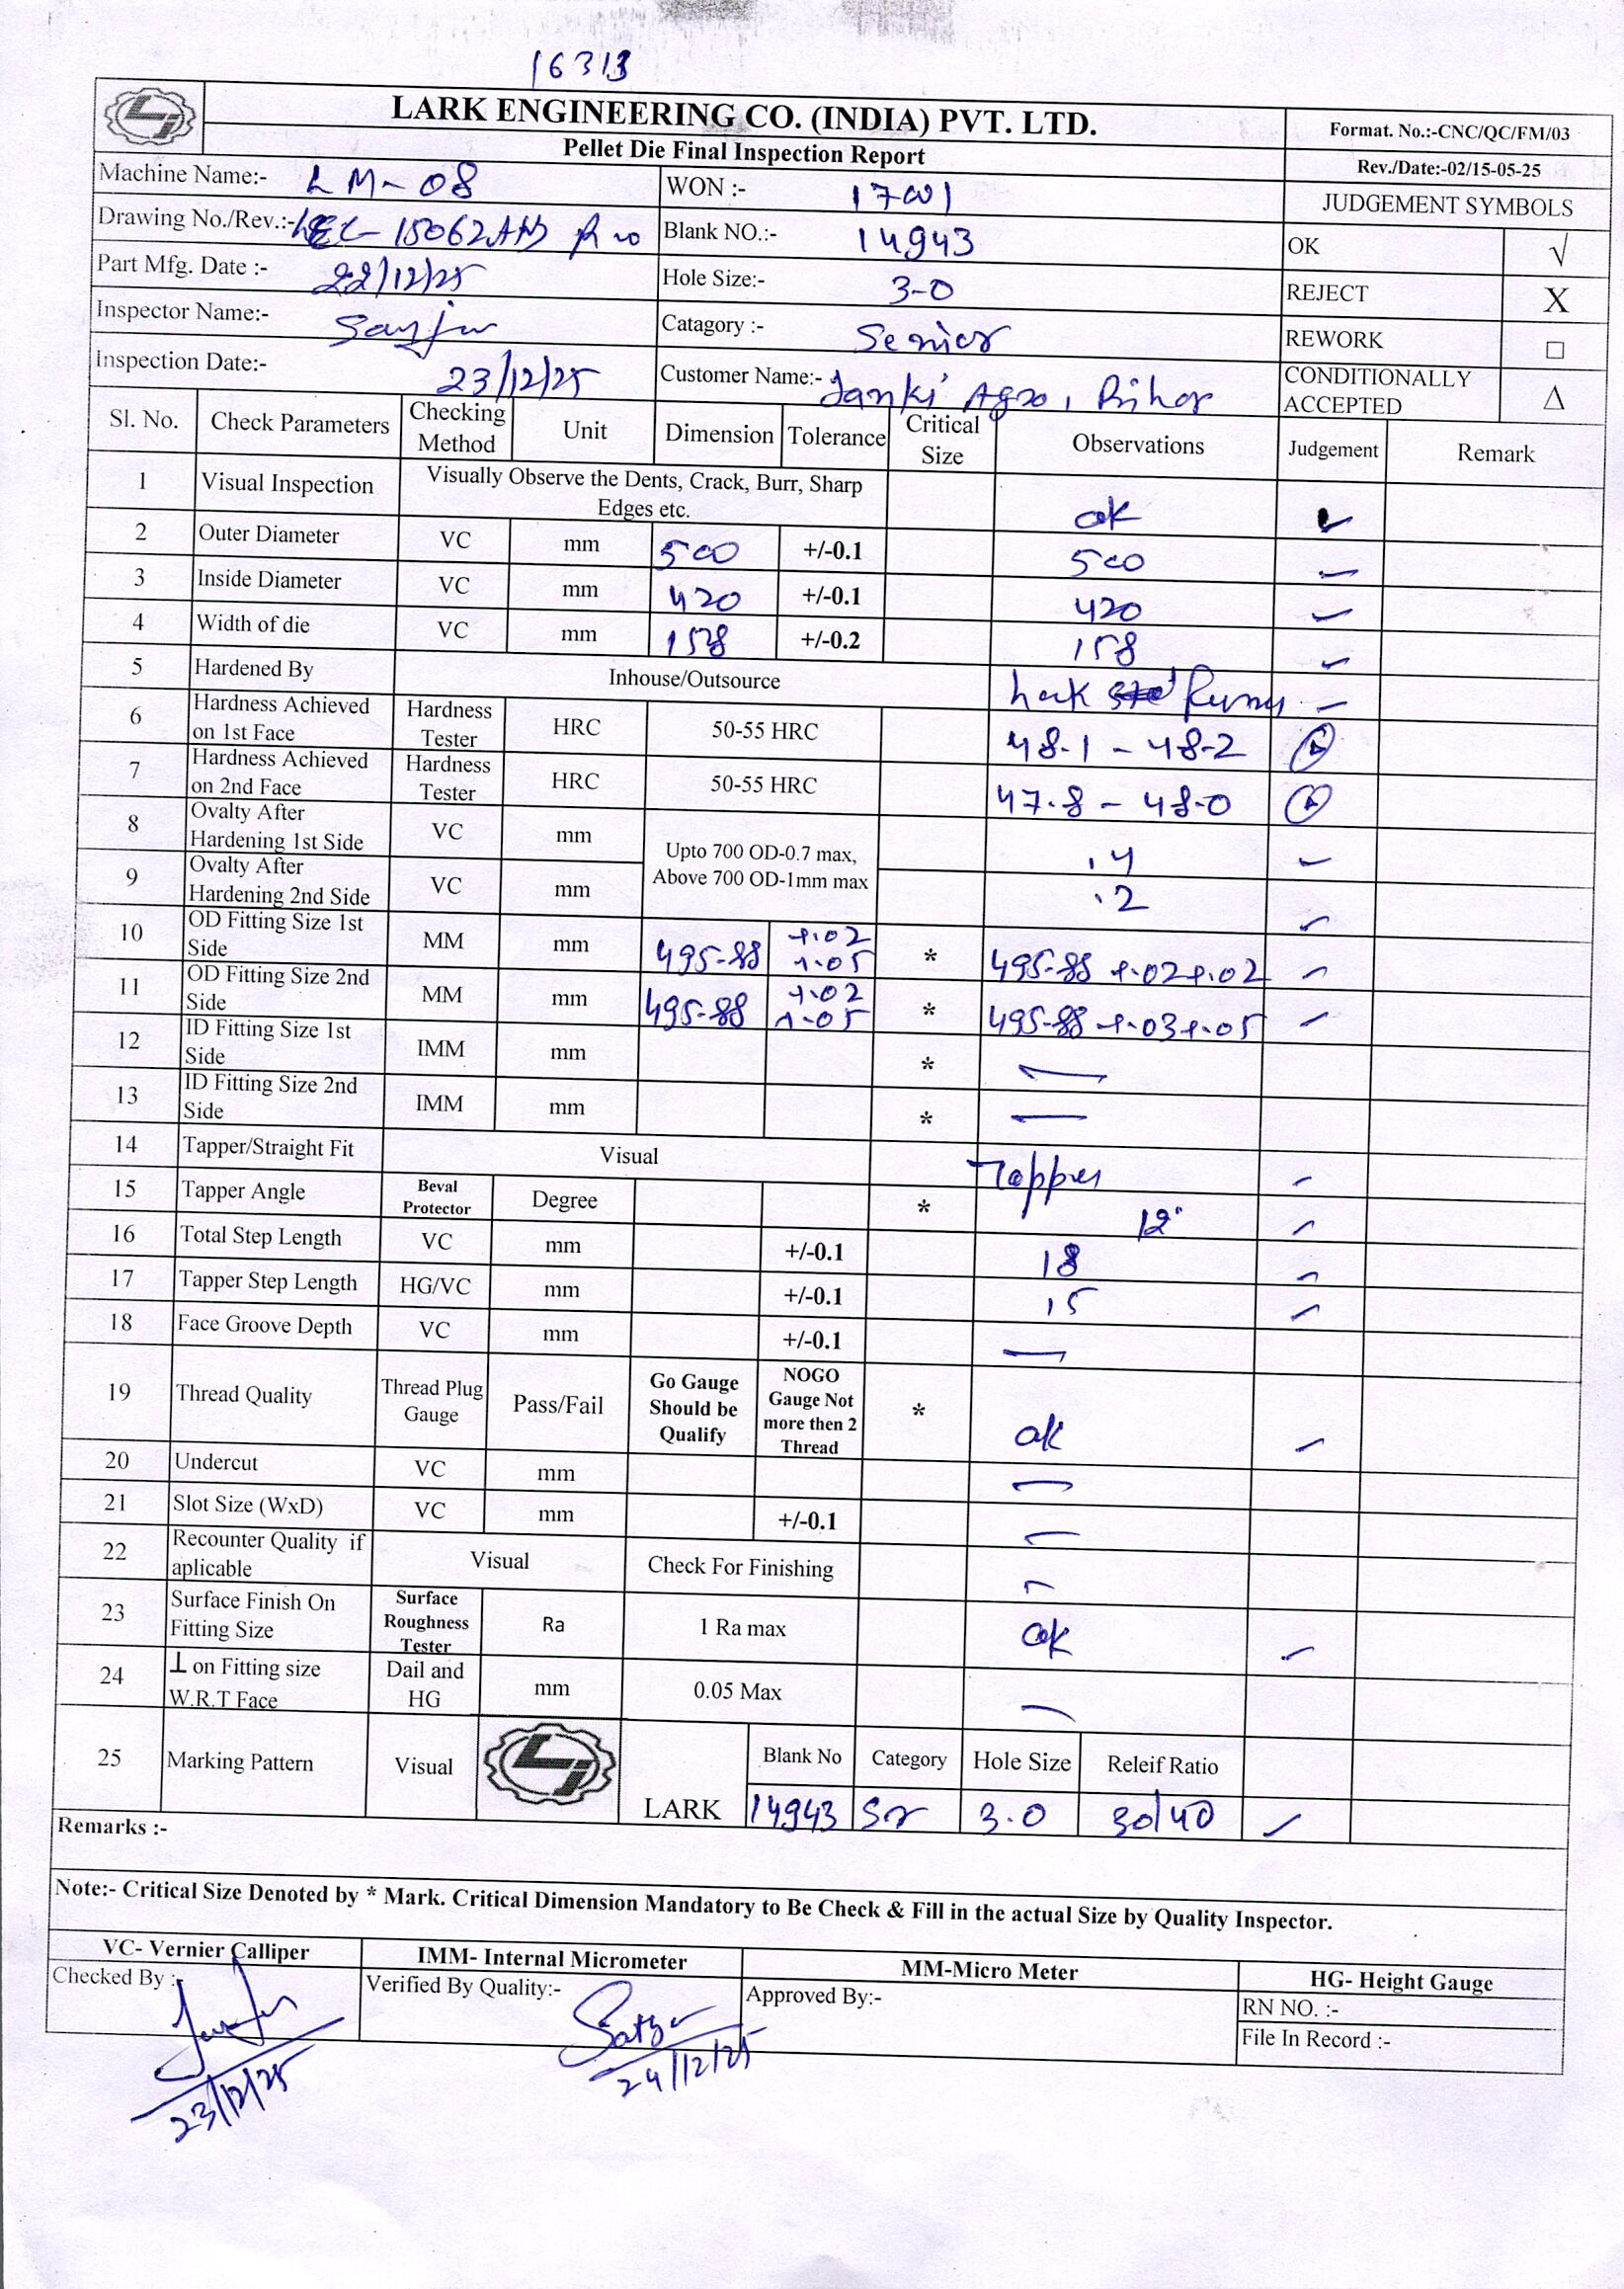 16313
LARK ENGINEERING CO. (INDIA) PVT. LTD.
Pellet Die Final Inspection Report
Format. No.:-CNC/QC/FM/03
Rev./Date:-02/15-05-25
Machine Name:- LM-08 WON :- 17001
JUDGEMENT SYMBOLS
Drawing No./Rev.:- Blank NO.:- 14943
OK √
Part Mfg. Date :- 22/12/25 Hole Size:- 3-0
REJECT X
Inspector Name:- Catagory :- Senior
REWORK □
Inspection Date:- 23/12/25 Customer Name:- Janki Agro, Bihar
CONDITIONALLY ACCEPTED Δ
Sl. No. Check Parameters Checking Method Unit Dimension Tolerance Critical Size Observations Judgement Remark
1 Visual Inspection Visually Observe the Dents, Crack, Burr, Sharp Edges etc. ok ✓
2 Outer Diameter VC mm 500 +/-0.1 500 ✓
3 Inside Diameter VC mm 420 +/-0.1 420 ✓
4 Width of die VC mm 158 +/-0.2 158 ✓
5 Hardened By Inhouse/Outsource ✓
6 Hardness Achieved on 1st Face Hardness Tester HRC 50-55 HRC 48.1 - 48.2
7 Hardness Achieved on 2nd Face Hardness Tester HRC 50-55 HRC 47.8 - 48.0
8 Ovalty After Hardening 1st Side VC mm Upto 700 OD-0.7 max, Above 700 OD-1mm max .4 ✓
9 Ovalty After Hardening 2nd Side VC mm .2 ✓
10 OD Fitting Size 1st Side MM mm 495.88 +.02 +.05 * 495.88 +.02+.02 ✓
11 OD Fitting Size 2nd Side MM mm 495.88 +.02 +.05 * 495.88 +.03+.05 ✓
12 ID Fitting Size 1st Side IMM mm * —
13 ID Fitting Size 2nd Side IMM mm * —
14 Tapper/Straight Fit Visual Tapper ✓
15 Tapper Angle Beval Protector Degree * 12° ✓
16 Total Step Length VC mm +/-0.1 18 ✓
17 Tapper Step Length HG/VC mm +/-0.1 15 ✓
18 Face Groove Depth VC mm +/-0.1 —
19 Thread Quality Thread Plug Gauge Pass/Fail Go Gauge Should be Qualify NOGO Gauge Not more then 2 Thread * ok ✓
20 Undercut VC mm —
21 Slot Size (WxD) VC mm +/-0.1 —
22 Recounter Quality if aplicable Visual Check For Finishing —
23 Surface Finish On Fitting Size Surface Roughness Tester Ra 1 Ra max ok ✓
24 ⊥ on Fitting size W.R.T Face Dail and HG mm 0.05 Max —
25 Marking Pattern Visual LARK Blank No Category Hole Size Releif Ratio
14943 Sr 3.0 30/40 ✓
Remarks :-
Note:- Critical Size Denoted by * Mark. Critical Dimension Mandatory to Be Check & Fill in the actual Size by Quality Inspector.
VC- Vernier Calliper IMM- Internal Micrometer MM-Micro Meter HG- Height Gauge
Checked By :- Verified By Quality:- Approved By:- RN NO. :-
File In Record :-
23/12/25 24/12/25